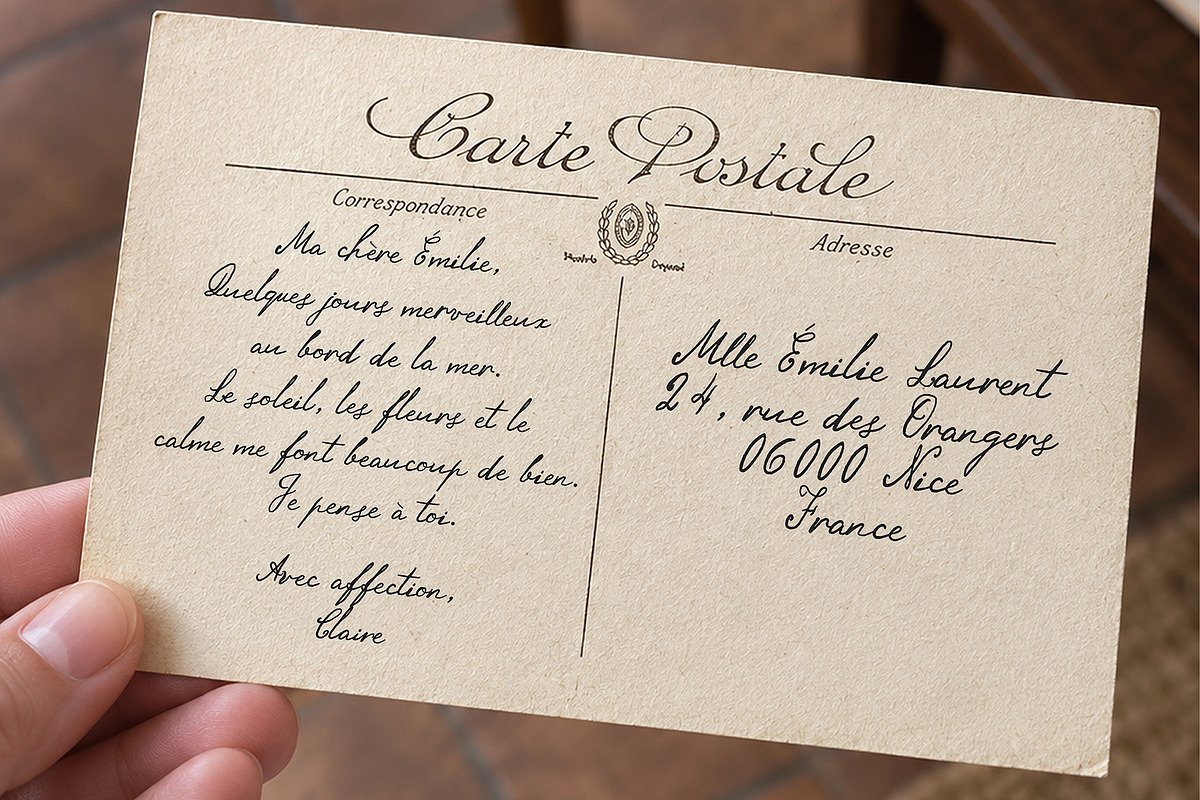 Carte Postale
Correspondance
Ma chère Émilie,
Quelques jours merveilleux
au bord de la mer.
Le soleil, les fleurs et le
calme me font beaucoup de bien.
Je pense à toi.
Avec affection,
Claire
Adresse
Mlle Émilie Laurent
24, rue des Orangers
06000 Nice
France